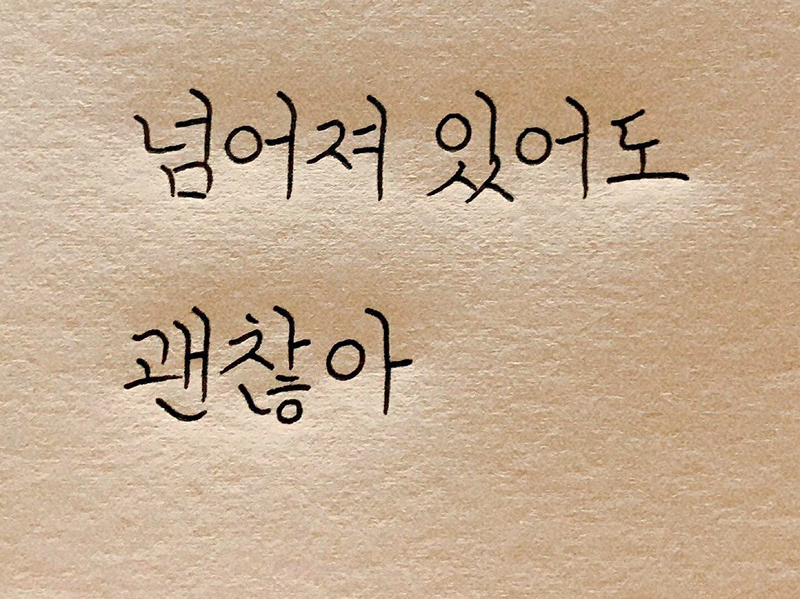 넘어져 있어도
괜찮아